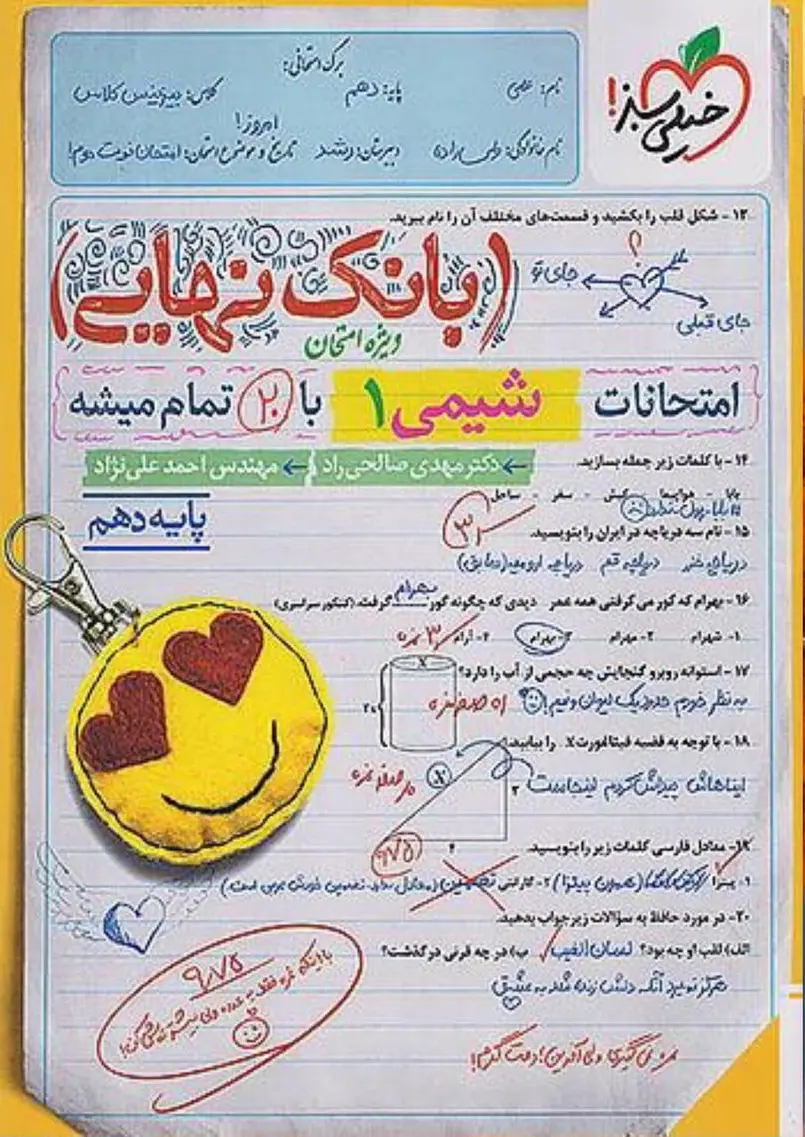 خیلی سبز!
برگ امتحانی:
نام:
پایه: دهم
کلاس: بیزینس کلاس
نام خانوادگی:
دبیرستان: رشد
امروز!
تاریخ و موضوع امتحان: امتحان نوبت دوم!
۱۳- شکل قلب را بکشید و قسمت‌های مختلف آن را نام ببرید.
جای تو
؟
جای قبلی
(بانک نهایی)
ویژه امتحان
امتحانات شیمی ۱ با ۲۰ تمام میشه
۱۴- با کلمات زیر جمله بسازید.
دکتر مهدی صالحی‌راد
مهندس احمد علی‌نژاد
بابا - هواپیما - کیش - سفر - ساحل
بابا پول ندارد
پایه دهم
۱۵- نام سه دریاچه در ایران را بنویسید.
دریاچه خزر دریاچه قم دریاچه ارومیه (سابق)
۱۶- بهرام که گور می‌گرفتی همه عمر دیدی که چگونه گور بهرام گرفت. (کنکور سراسری)
۱- شهرام ۲- مهرام ۳- بهرام ۴- آرام
۱۷- استوانه روبرو گنجایش چه حجمی از آب را دارد؟
X
به نظر خودم حدود یک لیوان و نیم!
۱۸- با توجه به قضیه فیثاغورث X را بیابید.
X
ایناهاش پیداش کردم اینجاست
۳
۴
۹/۷۵
۱۹- معادل فارسی کلمات زیر را بنویسید.
۱- پیتزا
۲- گارانتی
۲۰- در مورد حافظ به سؤالات زیر جواب بدهید.
الف) لقب او چه بود؟ لسان الغیب ب) در چه قرنی درگذشت؟
هرگز نمیرد آنکه دلش زنده شد به عشق
۹/۷۵